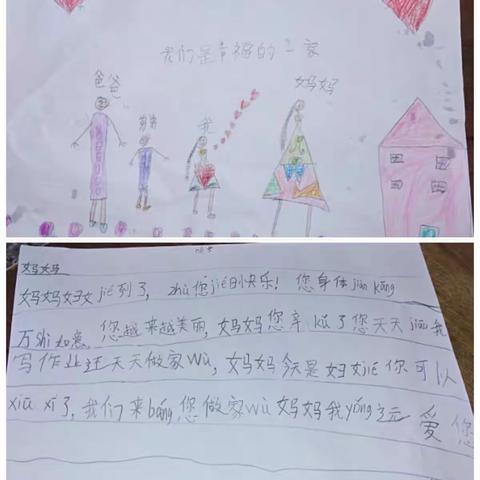 我们是幸福的一家
爸爸
弟弟
我
妈妈
妈妈
妈妈妇女jié到了，zhù您jié日快乐！您身体jiàn kāng
万shì如意。您越来越美丽，妈妈您辛kǔ了您天天jiāo我
写作业还天天做家wù，妈妈今天是妇女jié你可以
xiū xī了，我们来bāng您做家wù妈妈我yǒng元爱您